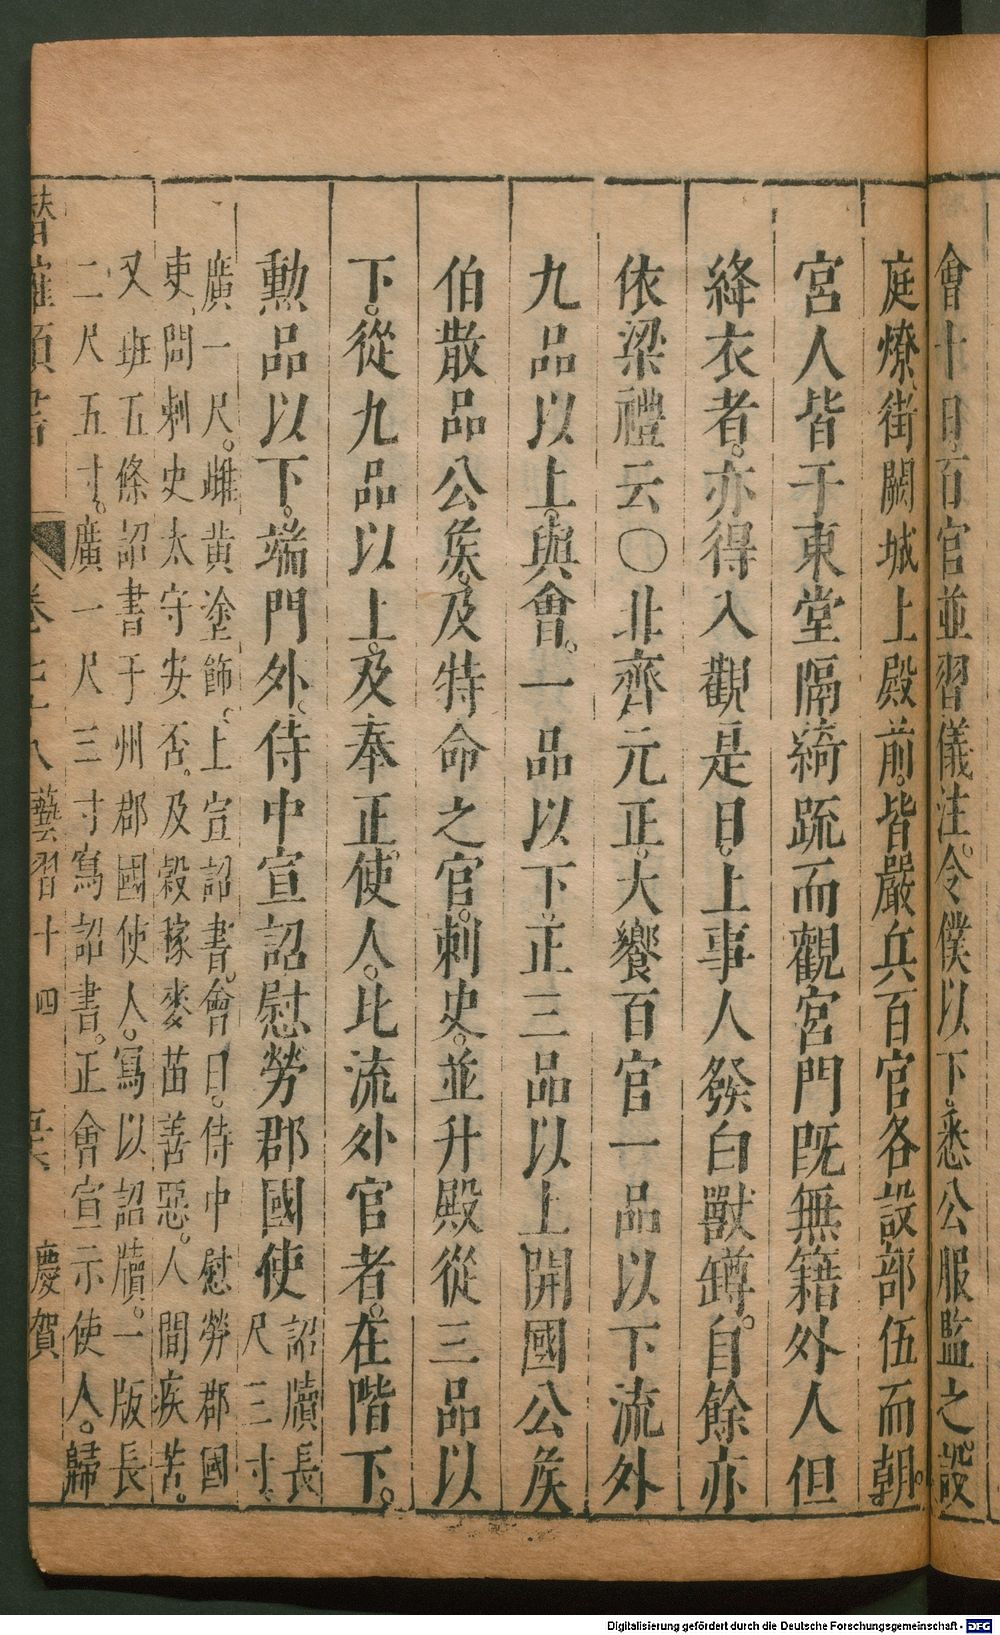 會十日百官並習儀注令僕以下悉公服監之設
庭燎街闕城上殿前皆嚴兵百官各設部伍而朝
宮人皆于東堂隔綺疏而觀宮門既無籍外人但
絳衣者亦得入觀是日上事人發白獸罇自餘亦
依梁禮云〇北齊元正大饗百官一品以下流外
九品以上與會一品以下正三品以上開國公侯
伯散品公侯及特命之官刺史並升殿從三品以
下從九品以上及奉正使人比流外官者在階下
勳品以下端門外侍中宣詔慰勞郡國使詔牘長
尺三寸
廣一尺雌黃塗飾上宣詔書會日侍中慰勞郡國
吏問刺史太守安否及穀稼麥苗善惡人間疾苦
又班五條詔書于州郡國使人寫以詔牘一版長
二尺五寸廣一尺三寸寫詔書正會宣示使人歸
卷七十八 藝習十四 慶賀
Digitalisierung gefördert durch die Deutsche Forschungsgemeinschaft - DFG